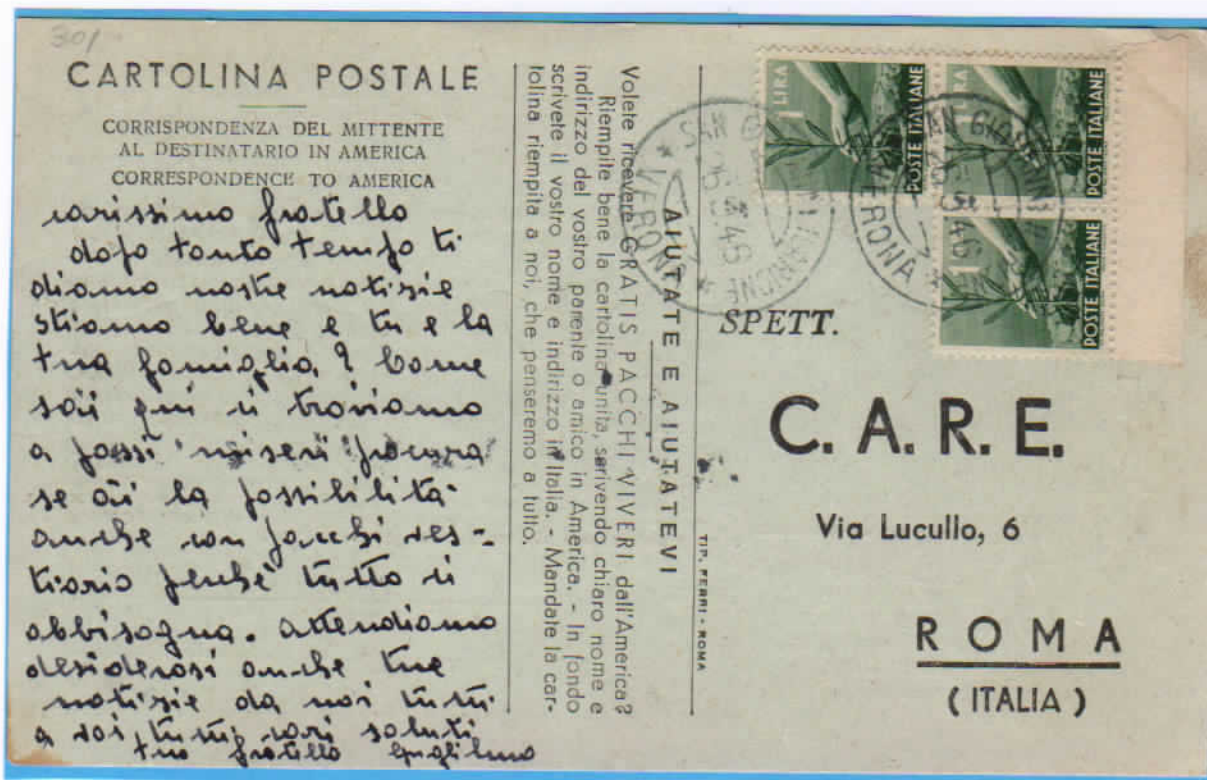 30/
CARTOLINA POSTALE
CORRISPONDENZA DEL MITTENTE
AL DESTINATARIO IN AMERICA
CORRESPONDENCE TO AMERICA
carissimo fratello
dopo tanto tempo ti
diamo nostre notizie
stiamo bene e tu e la
tua famiglia? Come
sai qui ci troviamo
a passi miseri procura
se ai la possibilità
anche con pacchi ves-
tiario perchè tutto ci
abbisogna. attendiamo
desiderosi anche tue
notizie da noi tutti
a voi tutti cari saluti
tuo fratello Guglielmo
AIUTATE E AIUTATEVI
Volete ricevere GRATIS PACCHI VIVERI dall'America?
Riempite bene la cartolina unita, scrivendo chiaro nome e
indirizzo del vostro parente o amico in America. - In fondo
scrivete il vostro nome e indirizzo in Italia. - Mandate la car-
tolina riempita a noi, che penseremo a tutto.
TIP. FERRI - ROMA
1 LIRA
POSTE ITALIANE
1 LIRA
POSTE ITALIANE
1
POSTE ITALIANE
SAN GIOVANNI
VERONA
46
SAN GIOVANNI
VERONA
46
SPETT.
C. A. R. E.
Via Lucullo, 6
ROMA
( ITALIA )